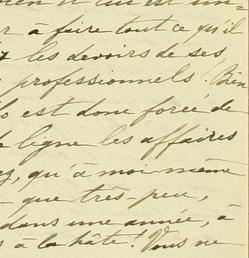 r à faire tout ce qu'il
les devoirs de ses
professionnels. Bien
est donc forcée de
ligne les affaires
, qu'à moi-même
que très-peu,
dans une année, à
à la hâte! Vous ne